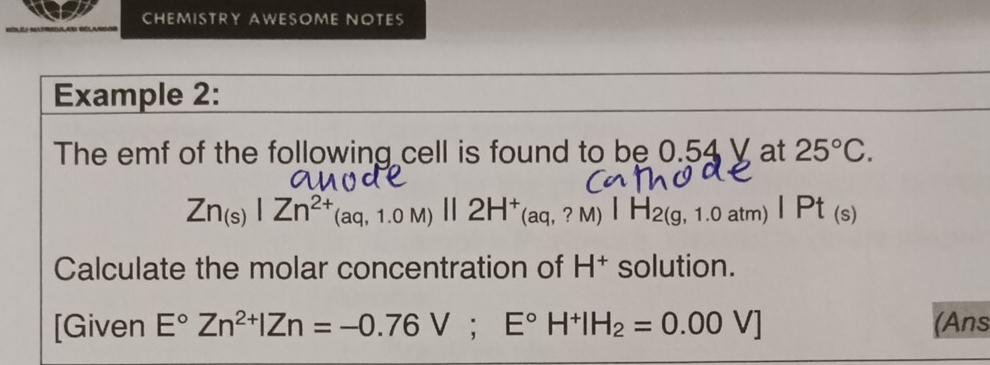 CHEMISTRY AWESOME NOTES
Example 2:
The emf of the following cell is found to be 0.54 V at 25°C.
anode cathode
Zn(s) | Zn²⁺(aq, 1.0 M) || 2H⁺(aq, ? M) | H₂(g, 1.0 atm) | Pt (s)
Calculate the molar concentration of H⁺ solution.
[Given E° Zn²⁺|Zn = –0.76 V ; E° H⁺|H₂ = 0.00 V]
(Ans